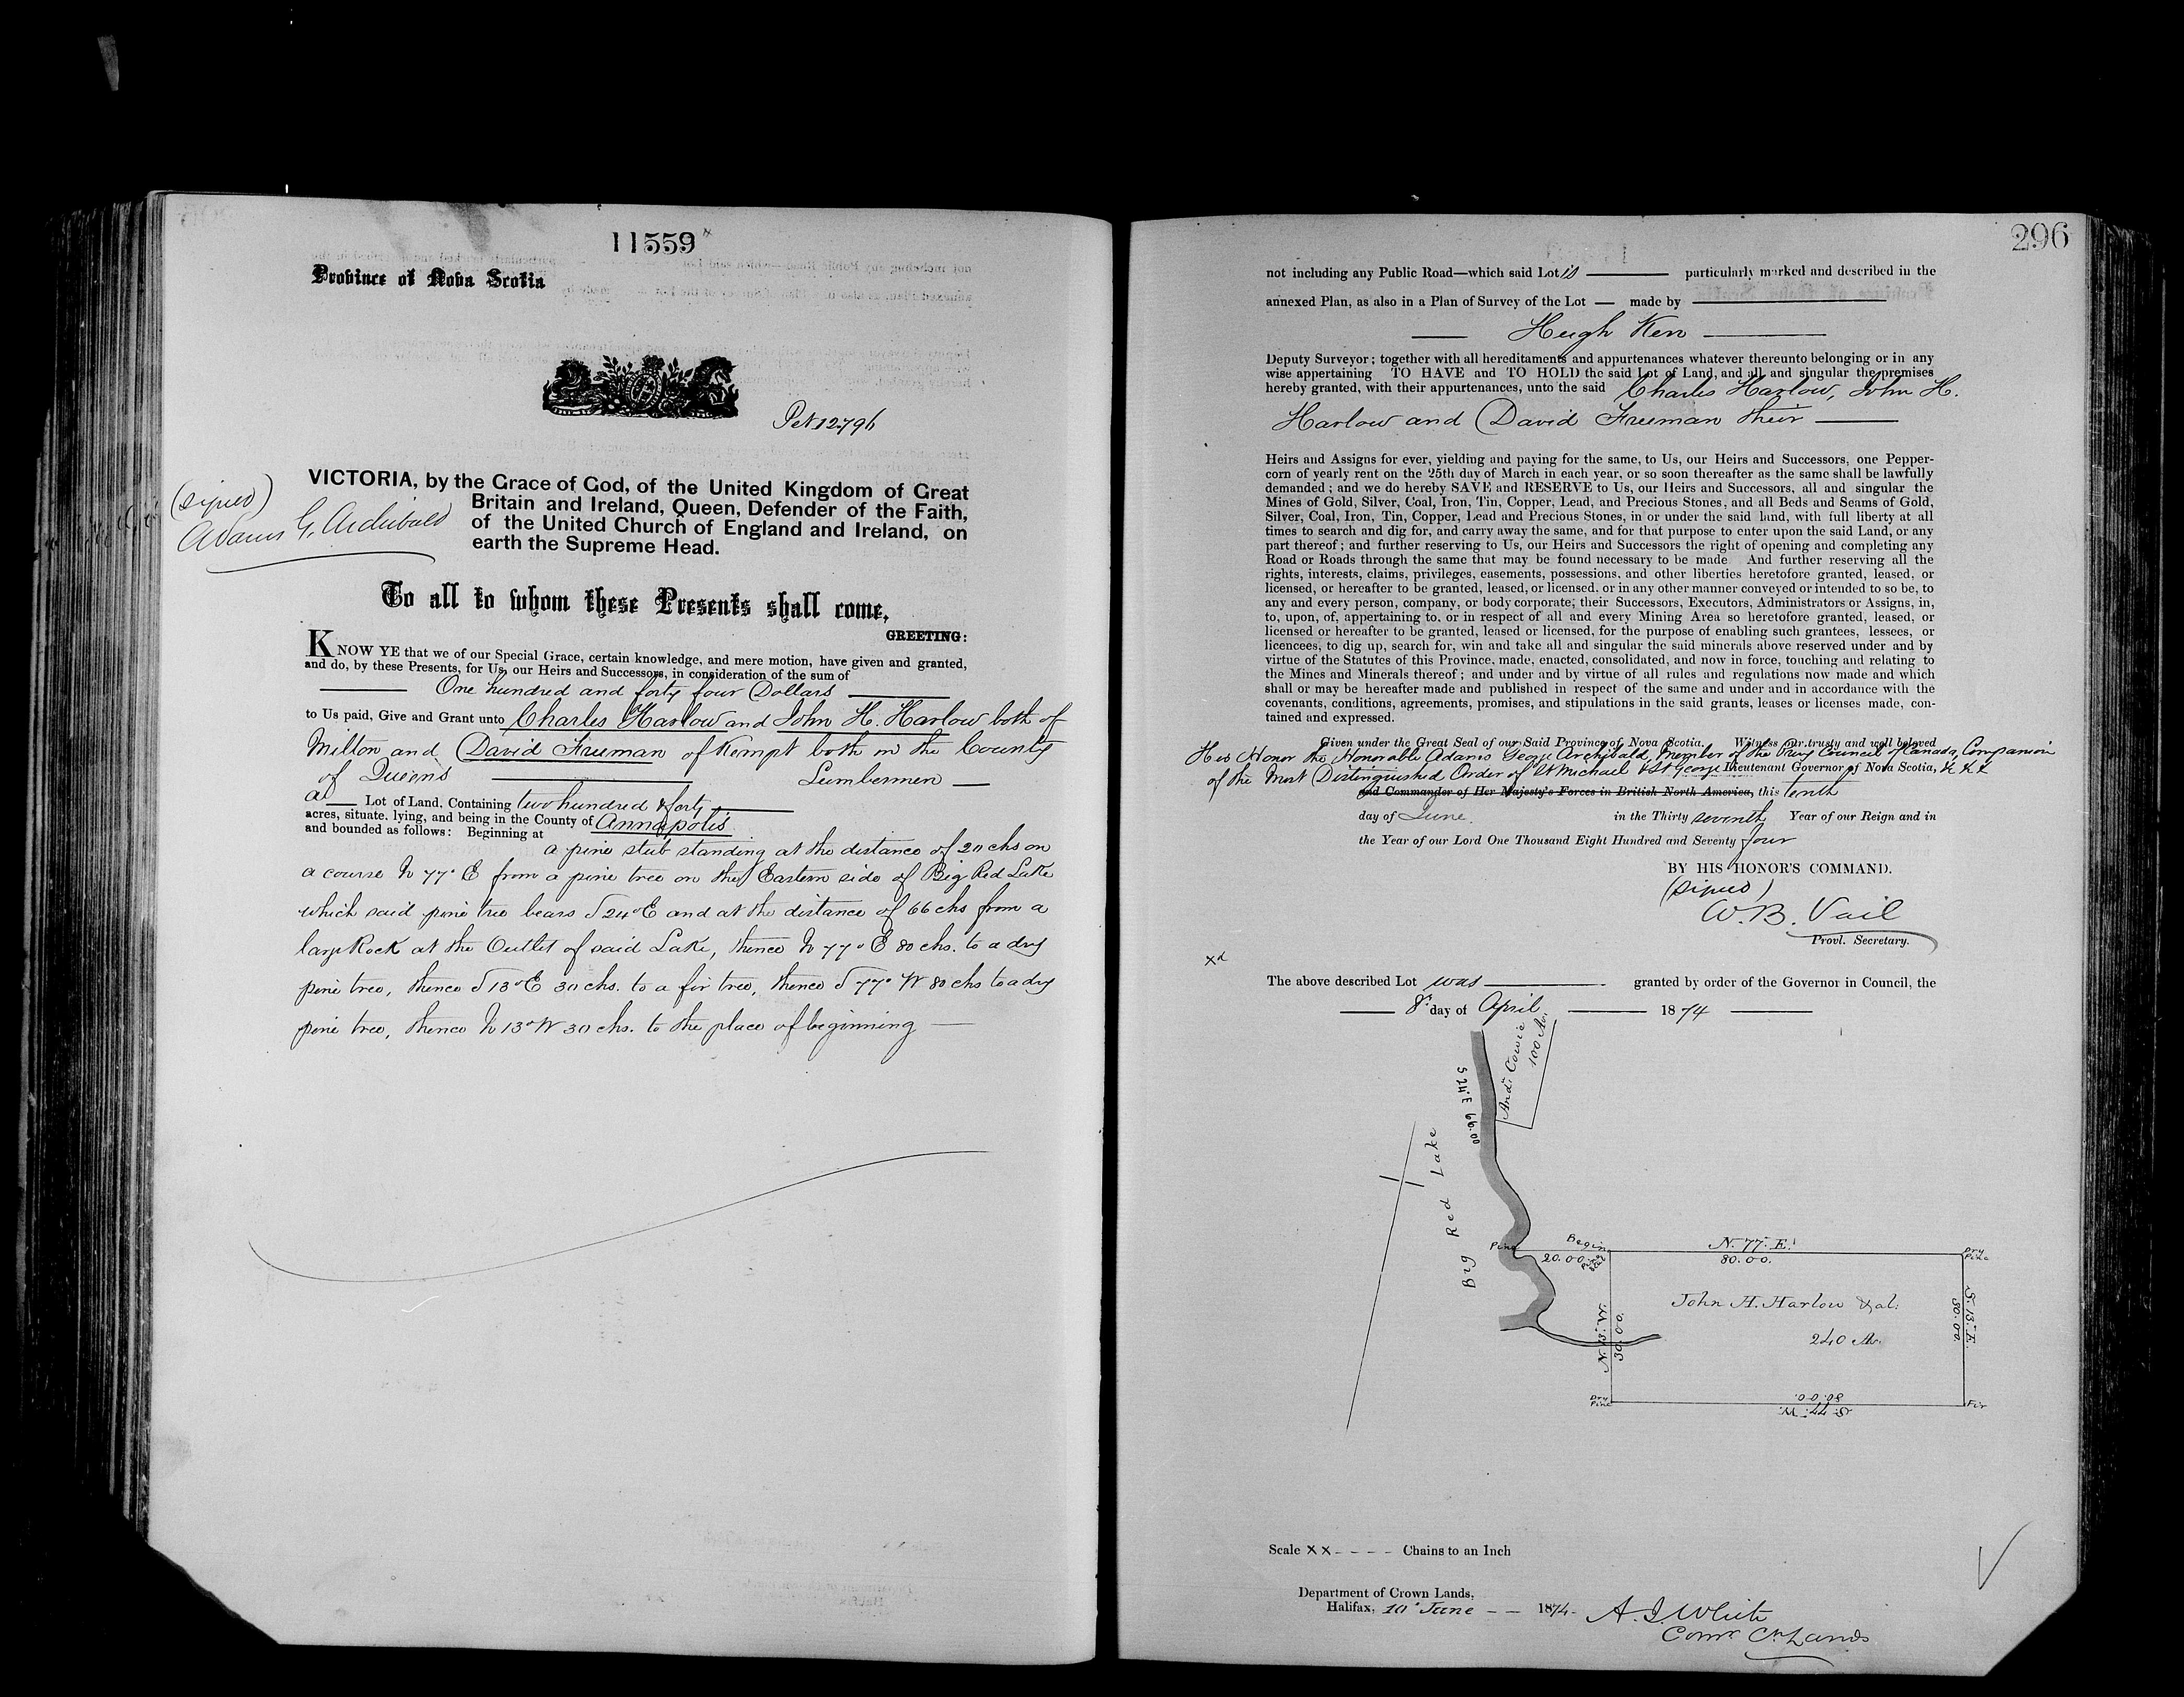 11559 x
Province of Nova Scotia
Pet 12796
(signed)
Adams G. Archibald
VICTORIA, by the Grace of God, of the United Kingdom of Great
Britain and Ireland, Queen, Defender of the Faith,
of the United Church of England and Ireland, on
earth the Supreme Head.
To all to whom these Presents shall come,
GREETING:
KNOW YE that we of our Special Grace, certain knowledge, and mere motion, have given and granted,
and do, by these Presents, for Us, our Heirs and Successors, in consideration of the sum of
One hundred and forty four Dollars
to Us paid, Give and Grant unto Charles Harlow and John H. Harlow both of
Milton and David Freeman of Kempt both in the County
of Queens Lumbermen
a Lot of Land, Containing two hundred & forty
acres, situate, lying, and being in the County of Annapolis
and bounded as follows: Beginning at
a pine stub standing at the distance of 20 chs on
a course N 77° E from a pine tree on the Eastern side of Big Red Lake
which said pine tree bears S 24° E and at the distance of 66 chs from a
large Rock at the Outlet of said Lake, thence N 77° E 80 chs. to a dry
pine tree, thence S 13° E 30 chs. to a fir tree, thence S 77° W 80 chs to a dry
pine tree, thence N 13° W 30 chs. to the place of beginning
296
not including any Public Road—which said Lot is particularly marked and described in the
annexed Plan, as also in a Plan of Survey of the Lot — made by
Hugh Kerr
Deputy Surveyor; together with all hereditaments and appurtenances whatever thereunto belonging or in any
wise appertaining TO HAVE and TO HOLD the said Lot of Land, and all and singular the premises
hereby granted, with their appurtenances, unto the said Charles Harlow, John H.
Harlow and David Freeman their
Heirs and Assigns for ever, yielding and paying for the same, to Us, our Heirs and Successors, one Pepper-
corn of yearly rent on the 25th day of March in each year, or so soon thereafter as the same shall be lawfully
demanded; and we do hereby SAVE and RESERVE to Us, our Heirs and Successors, all and singular the
Mines of Gold, Silver, Coal, Iron, Tin, Copper, Lead, and Precious Stones, and all Beds and Seams of Gold,
Silver, Coal, Iron, Tin, Copper, Lead and Precious Stones, in or under the said land, with full liberty at all
times to search and dig for, and carry away the same, and for that purpose to enter upon the said Land, or any
part thereof; and further reserving to Us, our Heirs and Successors the right of opening and completing any
Road or Roads through the same that may be found necessary to be made And further reserving all the
rights, interests, claims, privileges, easements, possessions, and other liberties heretofore granted, leased, or
licensed, or hereafter to be granted, leased, or licensed, or in any other manner conveyed or intended to so be, to
any and every person, company, or body corporate; their Successors, Executors, Administrators or Assigns, in,
to, upon, of, appertaining to, or in respect of all and every Mining Area so heretofore granted, leased, or
licensed or hereafter to be granted, leased or licensed, for the purpose of enabling such grantees, lessees, or
licencees, to dig up, search for, win and take all and singular the said minerals above reserved under and by
virtue of the Statutes of this Province, made, enacted, consolidated, and now in force, touching and relating to
the Mines and Minerals thereof; and under and by virtue of all rules and regulations now made and which
shall or may be hereafter made and published in respect of the same and under and in accordance with the
covenants, conditions, agreements, promises, and stipulations in the said grants, leases or licenses made, con-
tained and expressed.
Given under the Great Seal of our Said Province of Nova Scotia. Witness our trusty and well beloved
His Honor the Honorable Adams George Archibald, Member of the Privy Council of Canada, Companion
of the Most Distinguished Order of St Michael & St George Lieutenant Governor of Nova Scotia, &c &c &c
and Commander of Her Majesty's Forces in British North America, this tenth
day of June. in the Thirty seventh Year of our Reign and in
the Year of our Lord One Thousand Eight Hundred and Seventy four
BY HIS HONOR'S COMMAND.
(signed)
W. B. Vail
Provl. Secretary.
xd
The above described Lot was granted by order of the Governor in Council, the
8th day of April 1874
Andw Cowie
100 Ac.
S 24° E 66.00
Big Red Lake
Pine
Begin
20.00
Pine Stub
N. 77° E.
80.00.
Dry
Pine
John H. Harlow & al.
240 Ac.
S. 13° E.
30.00.
N. 13° W.
30.00.
S. 77° W.
80.00.
Dry
Pine
Fir
Scale x x - - - - Chains to an Inch
Department of Crown Lands,
Halifax, 10th June - - 1874 - A. J. White
Comr Cn Lands